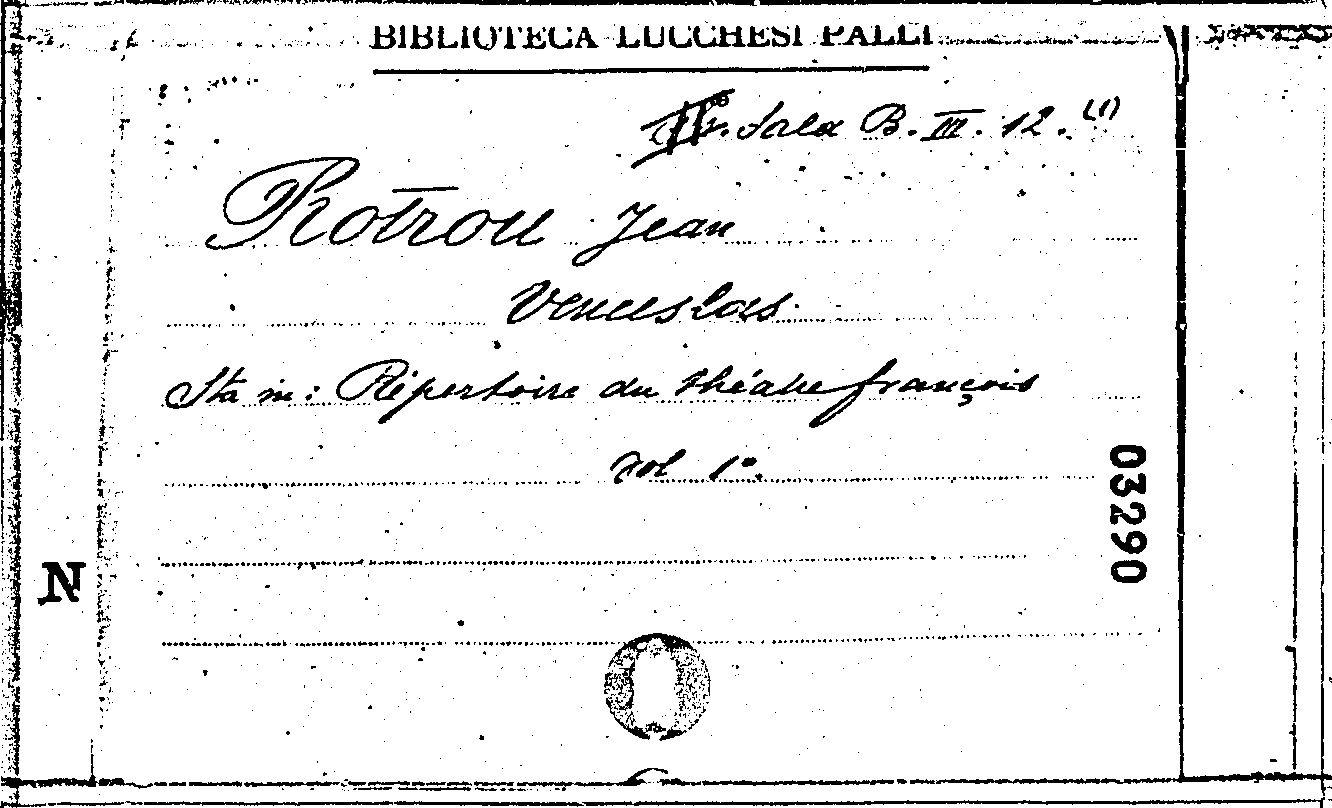 BIBLIOTECA LUCCHESI PALLI
Sala B. III. 12. (1)
Rotrou Jean
Venceslas
Sta in: Répertoire du théatre françois
vol 1º.
03290
N